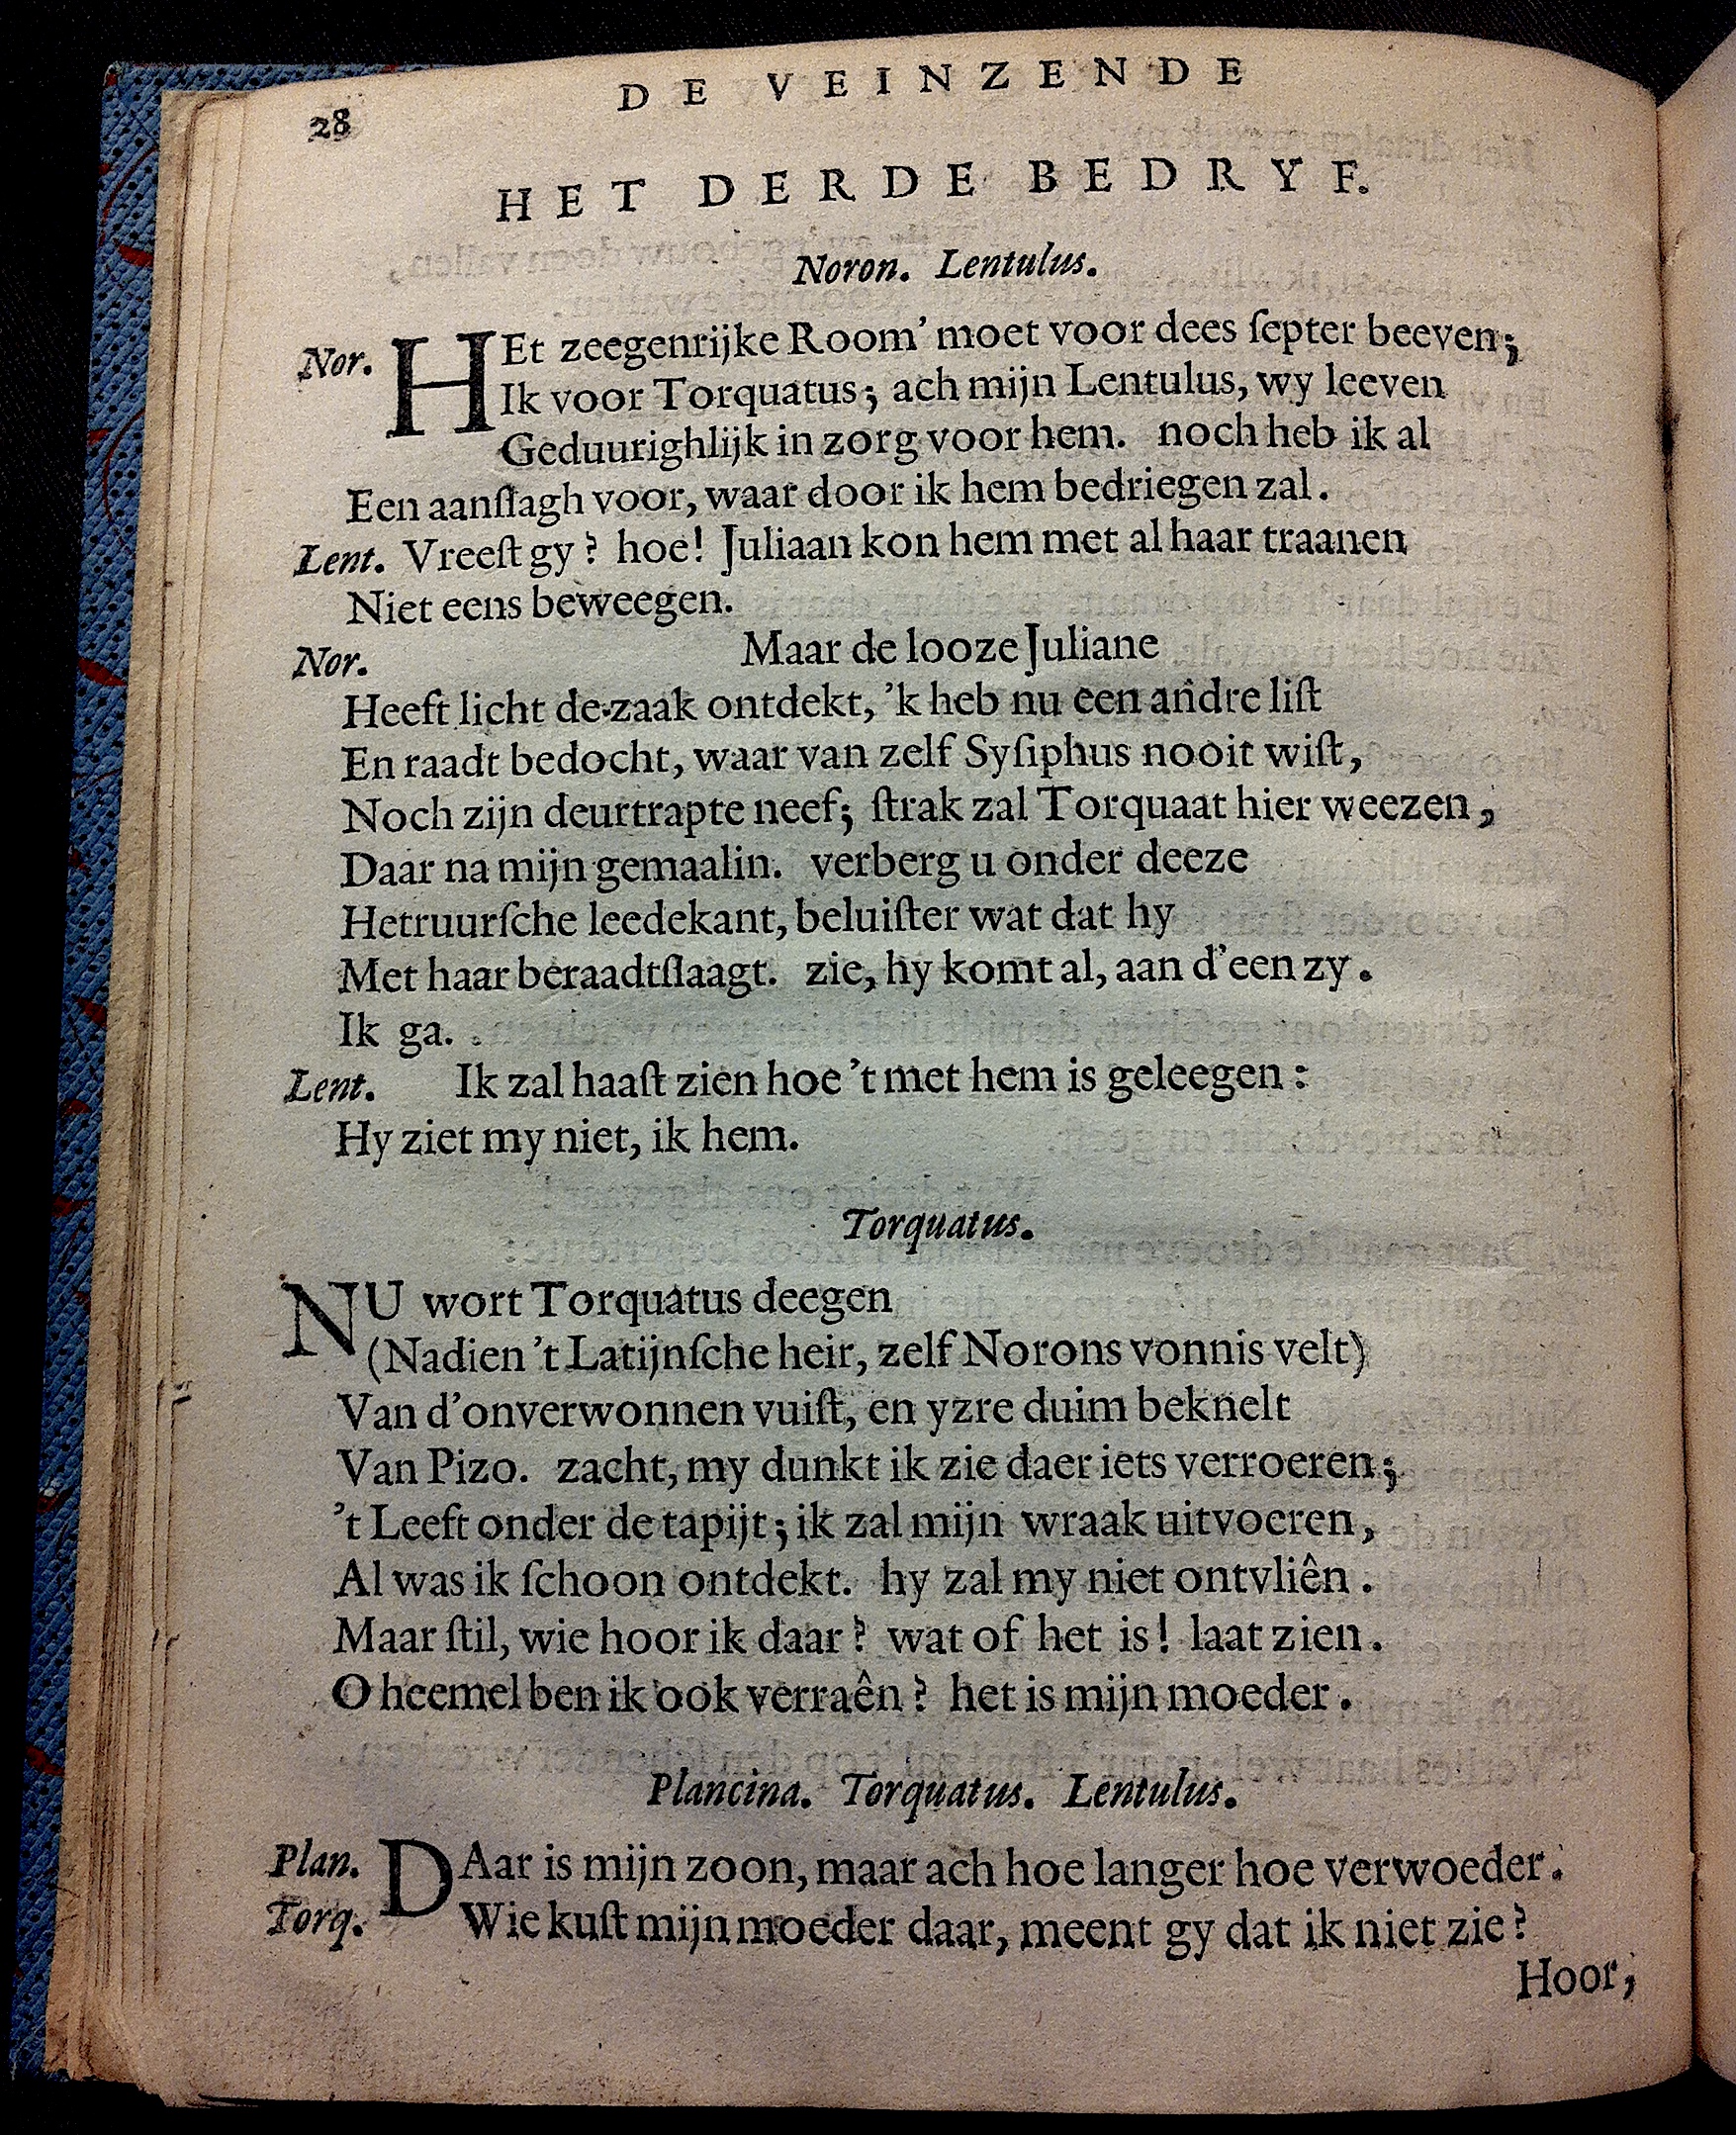 28
DE VEINZENDE
HET DERDE BEDRYF.
Noron. Lentulus.
Nor. HEt zeegenrijke Room' moet voor dees ſepter beeven;
Ik voor Torquatus; ach mijn Lentulus, wy leeven
Geduurighlijk in zorg voor hem. noch heb ik al
Een aanſlagh voor, waar door ik hem bedriegen zal.
Lent. Vreeſt gy? hoe! Juliaan kon hem met al haar traanen
Niet eens beweegen.
Nor. Maar de looze Juliane
Heeft licht de zaak ontdekt, 'k heb nu een andre liſt
En raadt bedocht, waar van zelf Syſiphus nooit wiſt,
Noch zijn deurtrapte neef; ſtrak zal Torquaat hier weezen,
Daar na mijn gemaalin. verberg u onder deeze
Hetruurſche leedekant, beluiſter wat dat hy
Met haar beraadtſlaagt. zie, hy komt al, aan d'een zy.
Ik ga.
Lent. Ik zal haaſt zien hoe 't met hem is geleegen:
Hy ziet my niet, ik hem.
Torquatus.
NU wort Torquatus deegen
(Nadien 't Latijnſche heir, zelf Norons vonnis velt)
Van d'onverwonnen vuiſt, en yzre duim beknelt
Van Pizo. zacht, my dunkt ik zie daer iets verroeren;
't Leeft onder de tapijt; ik zal mijn wraak uitvoeren,
Al was ik ſchoon ontdekt. hy zal my niet ontvliên.
Maar ſtil, wie hoor ik daar? wat of het is! laat zien.
O heemel ben ik ook verraên? het is mijn moeder.
Plancina. Torquatus. Lentulus.
Plan. DAar is mijn zoon, maar ach hoe langer hoe verwoeder.
Torq. Wie kuſt mijn moeder daar, meent gy dat ik niet zie?
Hoor,